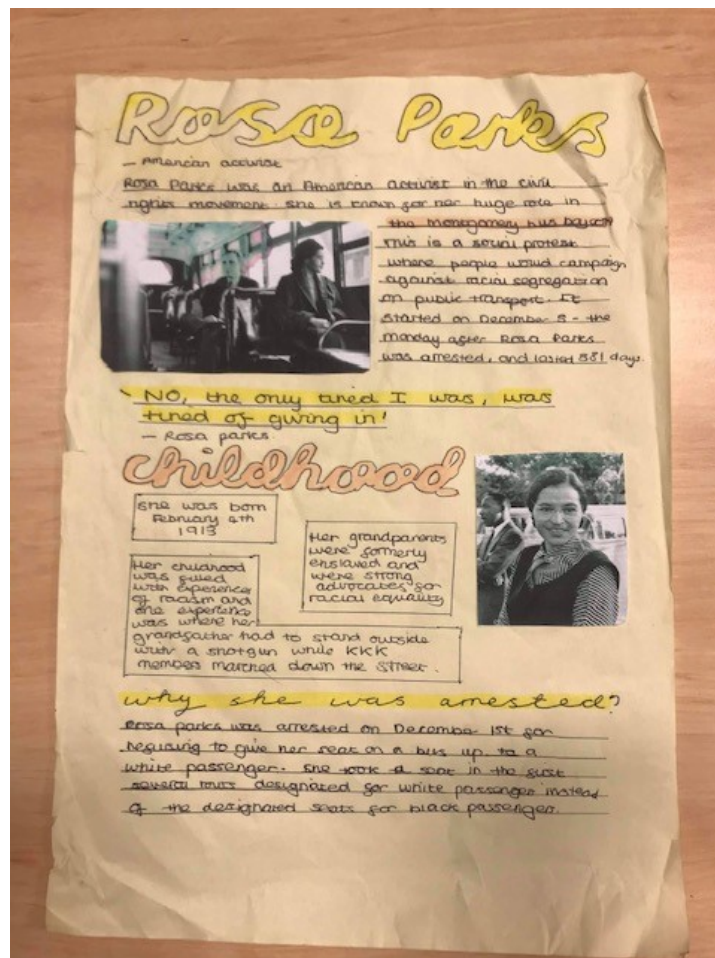 Rosa Parks
– American activist
Rosa Parks was an American activist in the civil
rights movement. She is known for her huge role in
the Montgomery bus boycott
This is a social protest
where people would campaign
against racial segregation
on public transport. It
started on December 5 - the
monday after Rosa Parks
was arrested, and lasted 381 days.
NO, the only tired I was, was
tired of giving in!
– Rosa parks
childhood
She was born
February 4th
1913
Her grandparents
were formerly
enslaved and
were strong
advocates for
racial equality
Her childhood
was filled
with experiences
of racism and
one experience
was where her
grandfather had to stand outside
with a shotgun while KKK
members marched down the street.
why she was arrested?
Rosa parks was arrested on December 1st for
refusing to give her seat on a bus up to a
white passenger. She took a seat in the first
several designated for white passenger instead
of the designated seats for black passenger.